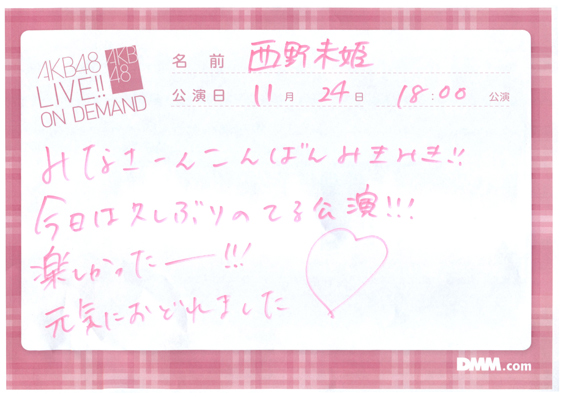 AKB48
LIVE!!
ON DEMAND
AKB
48
名前 西野未姫
公演日 11月 24日 18:00 公演
みなさーんこんばんみきみき!!
今日は久しぶりのてる公演!!!
楽しかったー!!!
元気におどれました
DMM.com